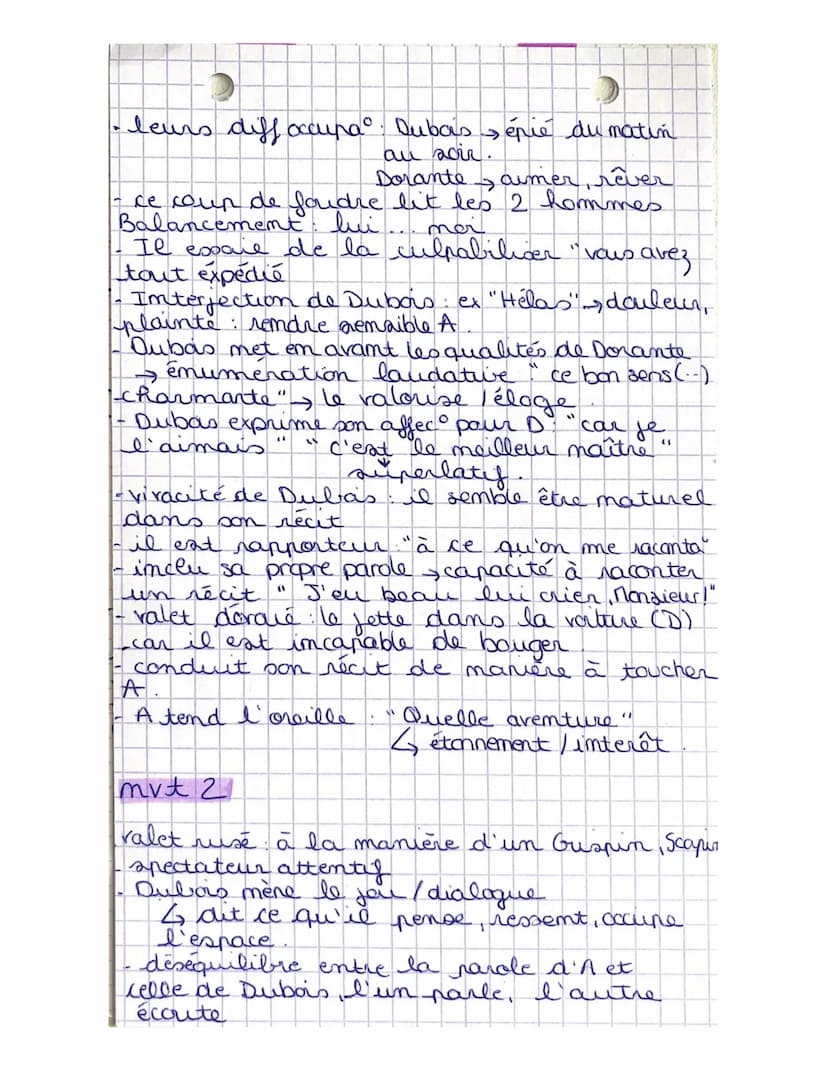 - leurs diff occupa° : Dubois → épié du matin
au soir.
Dorante → aimer, rêver
- ce coup de foudre lit les 2 hommes
Balancement : lui ... moi
- Il essaie de la culpabiliser "vous avez
tout expédié
- Interjection de Dubois : ex "Hélas" → douleur,
plainte : rendre sensible A.
- Dubois met en avant les qualités de Dorante
→ énumération laudative " ce bon sens (...)
charmante" → le valorise / éloge
- Dubois exprime son affec° pour D : "car je
l'aimais" " c'est le meilleur maître"
superlatif.
- vivacité de Dubois : il semble être naturel
dans son récit
- il est rapporteur : "à ce qu'on me raconta"
- inclu sa propre parole → capacité à raconter
un récit " J'eu beau lui crier, Monsieur !"
- valet dévoué : le jette dans la voiture (D)
car il est incapable de bouger.
- conduit son récit de manière à toucher
A.
- A tend l'oreille : "Quelle aventure"
↳ étonnement / intérêt.
mvt 2
valet rusé : à la manière d'un Crispin, Scapin
- spectateur attentif
- Dubois mène le jeu / dialogue
↳ dit ce qu'il pense, ressent, occupe
l'espace.
- déséquilibre entre la parole d'A et
celle de Dubois, l'un parle, l'autre
écoute